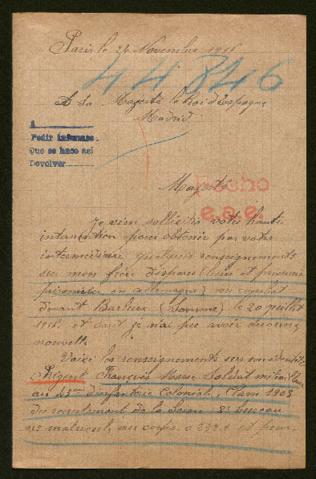 Paris le 24 Novembre 1916
44846
A Sa Majesté le Roi d'Espagne
Madrid
A
Pedir informes.
Que se hace así
Devolver
Majesté
Hecho
e.a.e.
Je viens solliciter votre haute
intervention pour obtenir par votre
intermédiaire quelques renseignements
de mon frère disparu (
prisonnier en allemagne) au combat
devant Barleux (Somme) le 20 juillet
1916 et dont je n'ai pas avoir aucune
nouvelle
Voici les renseignements
François Marie Soldat mitrailleur
au d'infanterie Coloniale, Classe 1903
du recrutement de la Seine 2e bureau
matricule au corps et pour